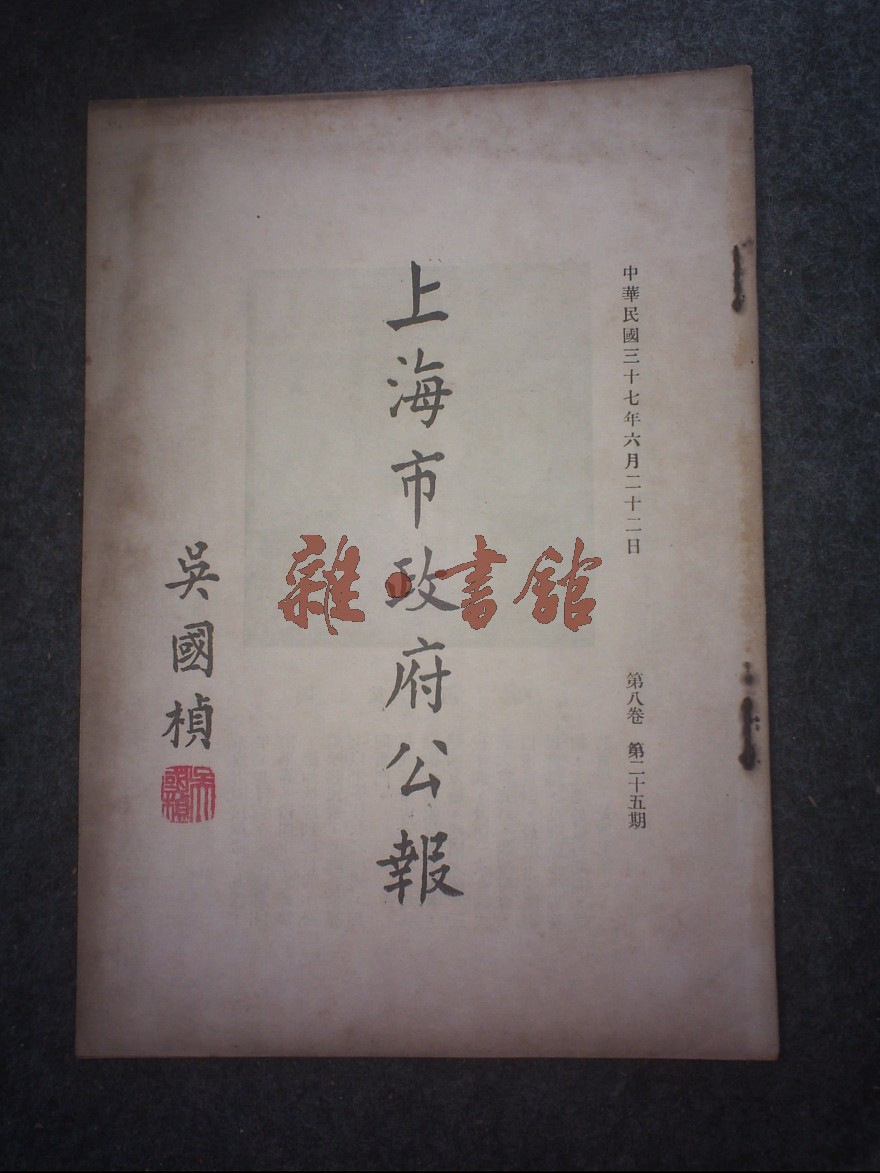 中華民國三十七年六月二十二日
第八卷 第二十五期
上海市政府公報
吳國楨
吳國楨
雜·書館